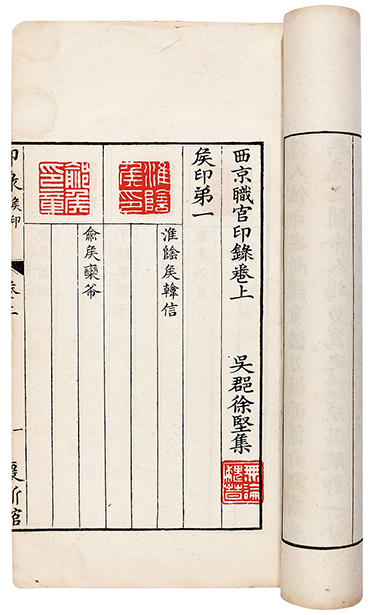 西京職官印錄卷上
吳郡徐堅集
無論魏晉
矦印弟一
淮陰矦印
淮陰矦韓信
俞矦欒布
矦印
一